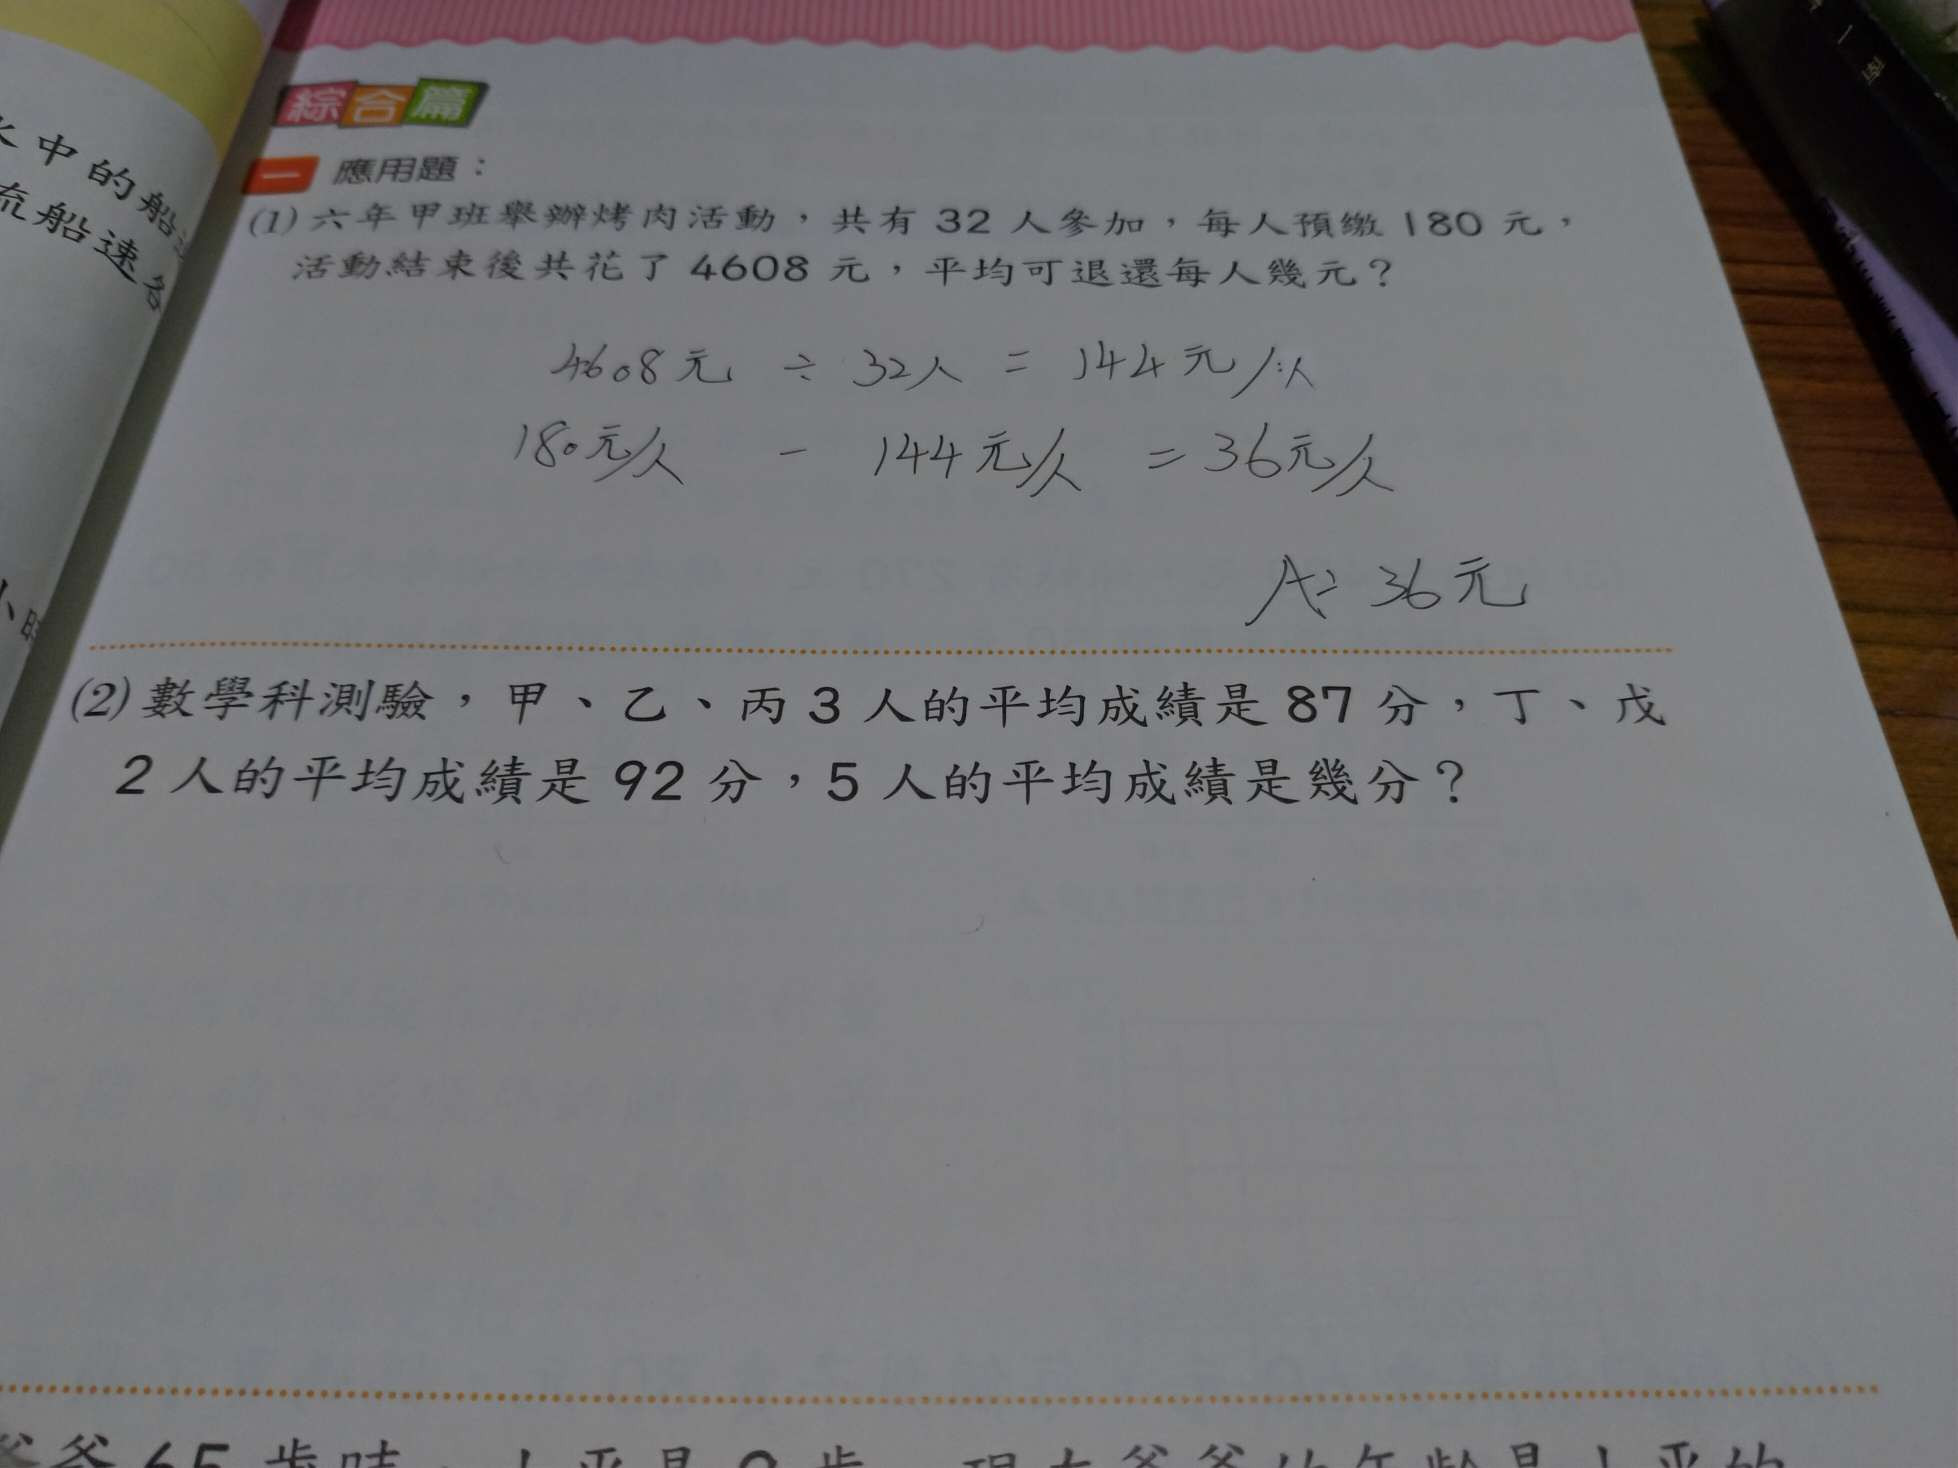 綜合篇
一 應用題：
(1) 六年甲班舉辦烤肉活動，共有 32 人參加，每人預繳 180 元，
活動結束後共花了 4608 元，平均可退還每人幾元？
4608元 ÷ 32人 = 144元/人
180元/人 - 144元/人 = 36元/人
A: 36元
(2) 數學科測驗，甲、乙、丙 3 人的平均成績是 87 分，丁、戊
2 人的平均成績是 92 分，5 人的平均成績是幾分？
水中的船
流船速各
小時